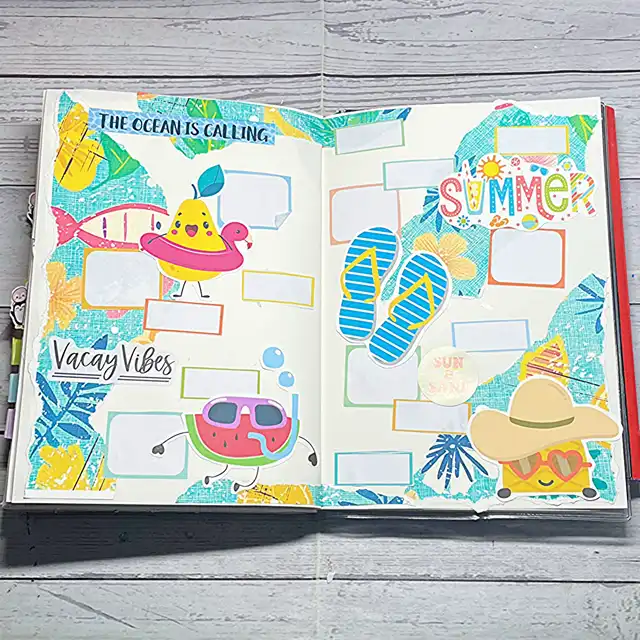 THE OCEAN IS CALLING
Vacay Vibes
SUMMER
SUN